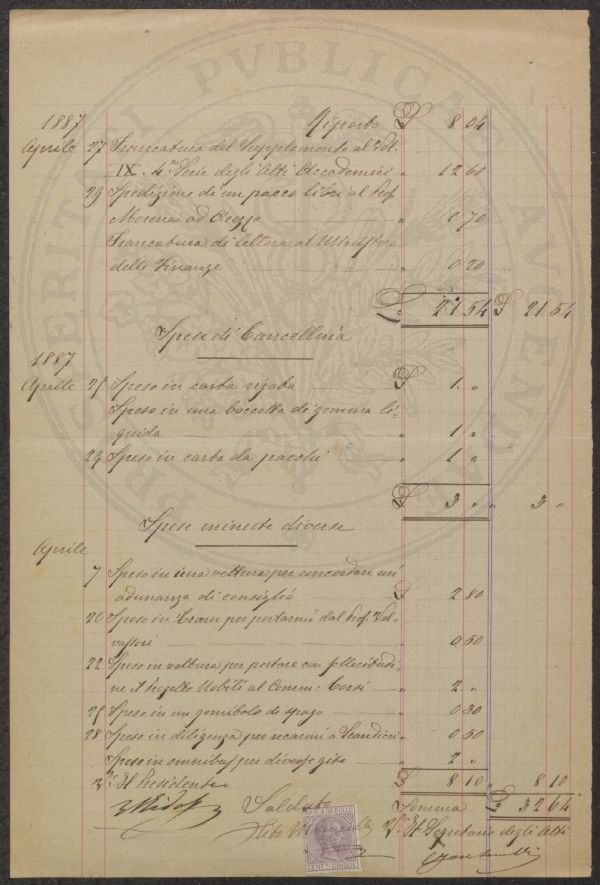 PROSPERITATI PVBLICAE AVGENDAE
1887
Riporto £ 8 04
Aprile 27 Francatura del Supplemento al Vol.
IX. 4a Serie degli Atti Accademici " 12 60
29 Spedizione di un pacco libri al Prof.
Morena ad Arezzo " 0 70
Francatura di lettera al Ministero
delle Finanze " 0 20
£ 21 54 £ 21 54
Spese di Cancelleria
1887
Aprile 25 Speso in carta rigata £ 1 "
Speso in una boccetta di gomma li-
quida " 1 "
29 Speso in carta da pacchi " 1 "
£ 3 " " 3 "
Spese minute diverse
Aprile
7 Speso in una vettura per concordare un
adunanza di consiglio £ 2 80
20 Speso in Tram per portarmi dal Prof. Val-
vassori " 0 60
22 Speso in vettura per portare con sollecitudi-
ne il Nobili al Comm: Corsi " 2 "
25 Speso in un gomitolo di spago " 0 30
28 Speso in diligenza per recarmi a Scandicci " 0 60
Speso in omnibus per diverse gite " 2 "
Vo Il Presidente £ 8 10 " 8 10
Saldato Somma £ 32 64
Vo Il Segretario degli Atti
MARCA DA BOLLO
CENT.MI CINQUE